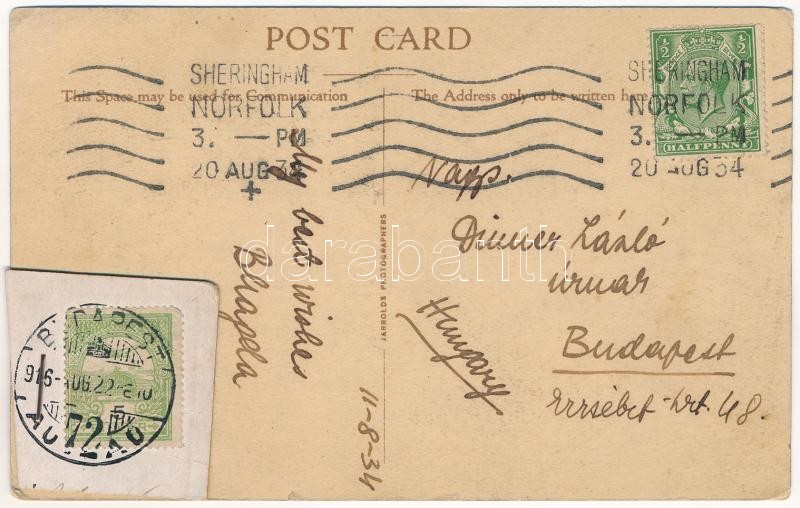 POST CARD
This Space may be used for Communication
The Address only to be written here
SHERINGHAM
NORFOLK
3. — PM
20 AUG 34
+
SHERINGHAM
NORFOLK
3. — PM
20 AUG 34
HALFPENNY
½ ½
My best wishes
11-8-34
JARROLDS PHOTOGRAPHERS
Nagys.
Dinner László
úrnak
Budapest
Erzsébet-krt. 48.
Hungary
BUDAPEST
916-AUG.22
72
darabanth